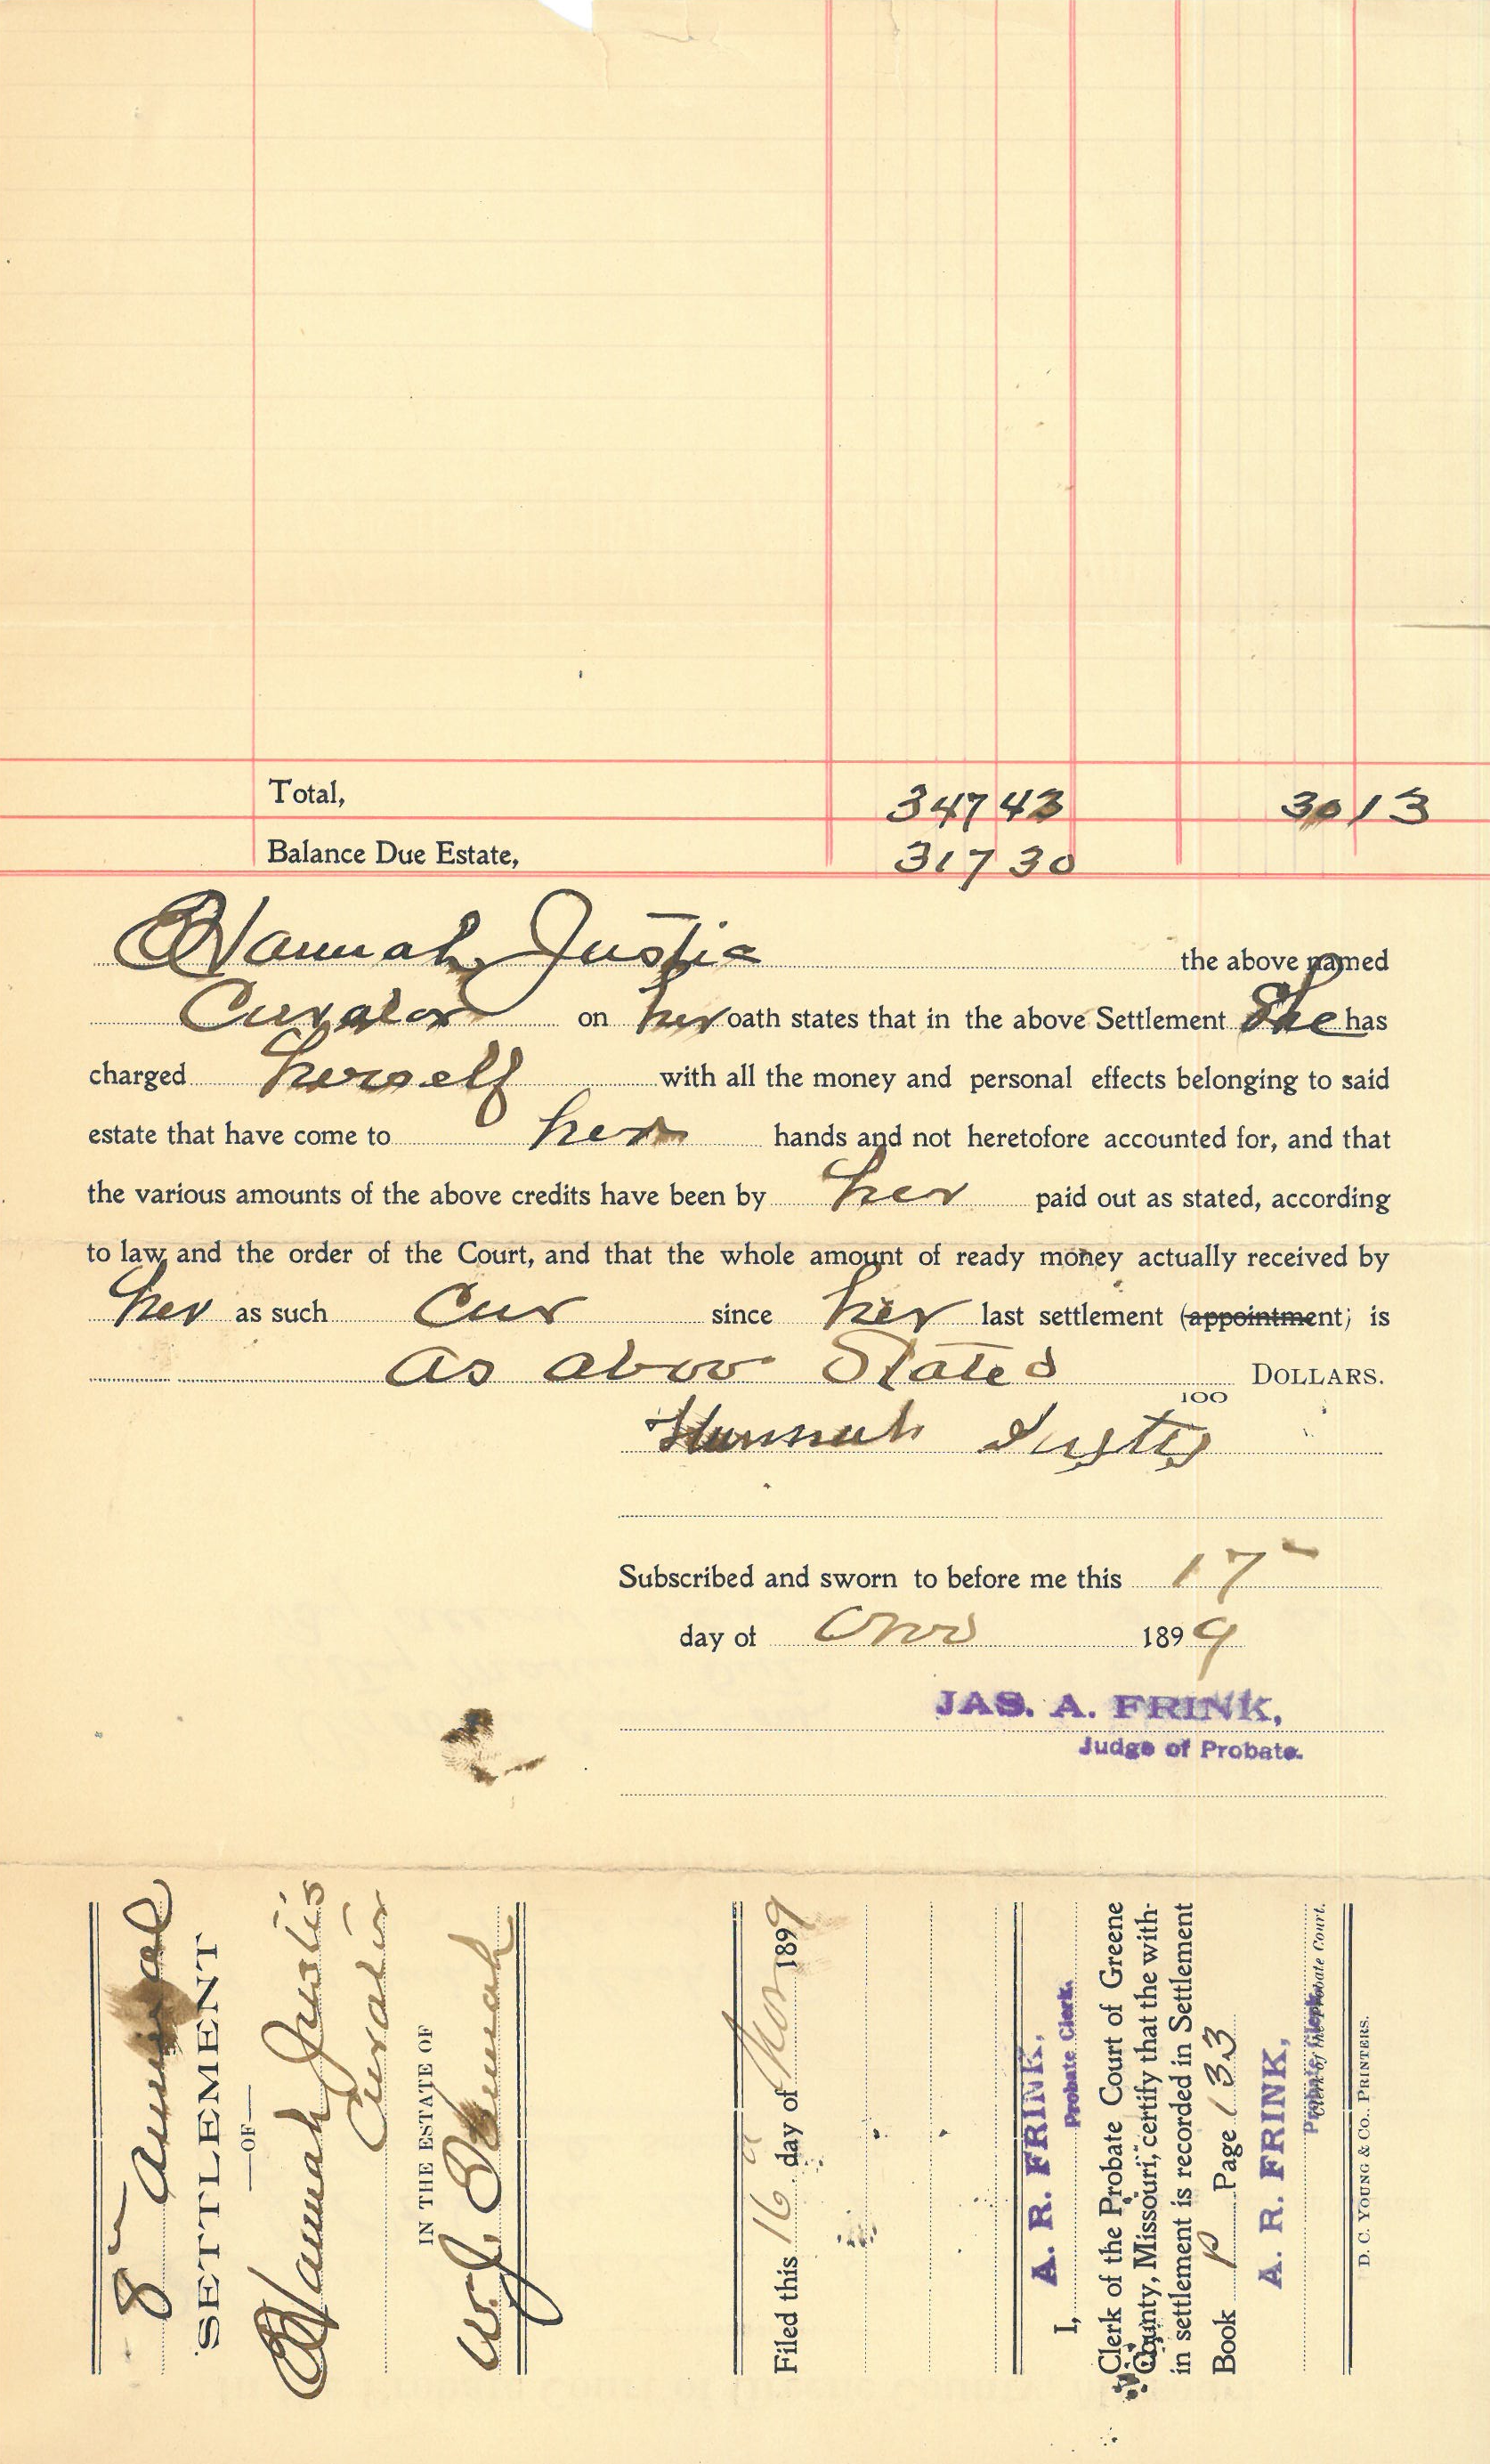 Total, 347 43 30 13
Balance Due Estate, 317 30
Hannah Justis the above named
Curator on her oath states that in the above Settlement She has
charged herself with all the money and personal effects belonging to said
estate that have come to her hands and not heretofore accounted for, and that
the various amounts of the above credits have been by her paid out as stated, according
to law and the order of the Court, and that the whole amount of ready money actually received by
her as such Cur since her last settlement (appointment) is
as abov Stated DOLLARS.
100
Hannah Justis
Subscribed and sworn to before me this 17
day of 1899
JAS. A. FRINK,
Judge of Probate.
8 Annual
SETTLEMENT
—OF—
Hannah Justis
Curator
IN THE ESTATE OF
W. J.
Filed this 16 day of 1899
A. R. FRINK,
Probate Clerk.
I,
Clerk of the Probate Court of Greene
County, Missouri, certify that the with-
in settlement is recorded in Settlement
Book P Page 133
A. R. FRINK,
Probate Clerk.
Clerk of the Probate Court.
D. C. YOUNG & CO., PRINTERS.